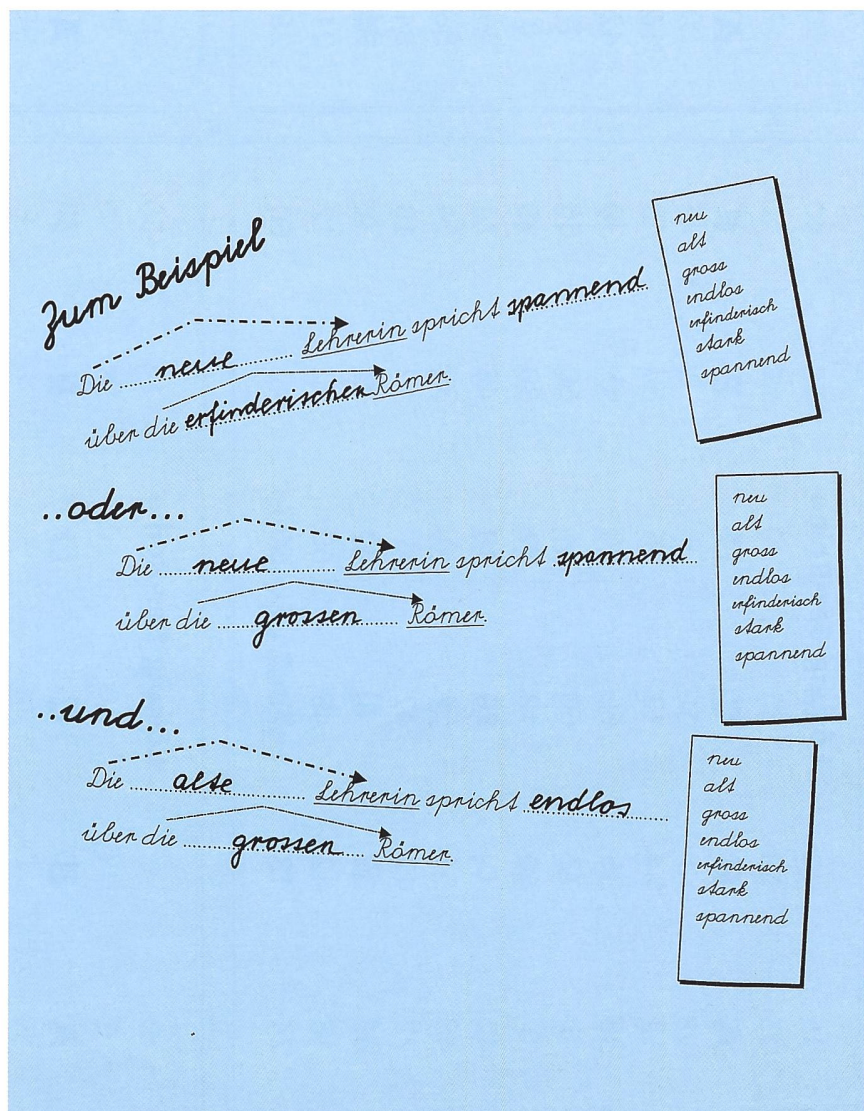 Zum Beispiel
Die neue Lehrerin spricht spannend
über die erfinderischen Römer.
neu
alt
gross
endlos
erfinderisch
stark
spannend
..oder...
Die neue Lehrerin spricht spannend
über die grossen Römer.
neu
alt
gross
endlos
erfinderisch
stark
spannend
..und...
Die alte Lehrerin spricht endlos
über die grossen Römer.
neu
alt
gross
endlos
erfinderisch
stark
spannend